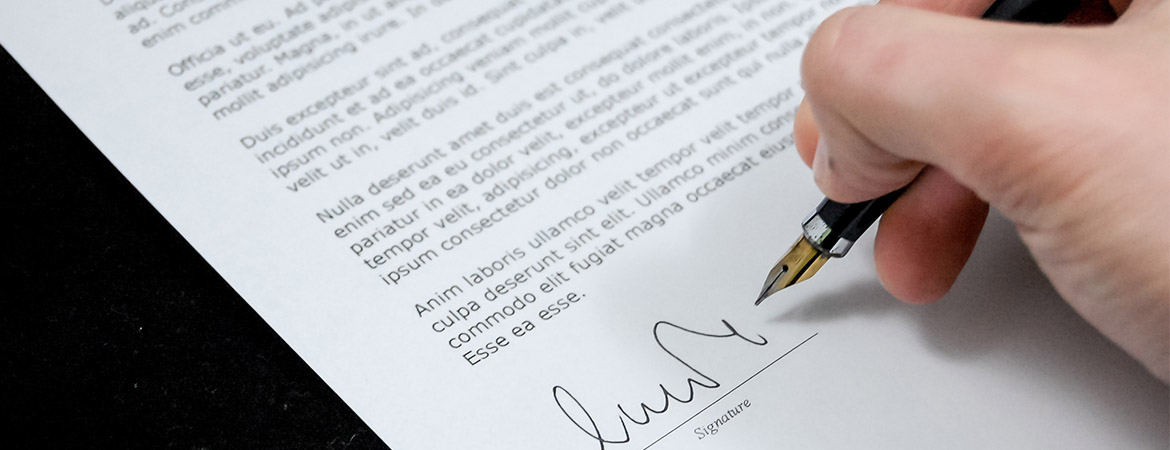 ad.
enim
Officia ut eu. Ad
esse, voluptate
pariatur. Magna, in ut
mollit adipisicing irure. In
Duis excepteur sint ad, consequat
incididunt et ad ea occaecat cupidatat
ipsum non. Adipisicing veniam mollit
velit ut in, velit duis id. Sint culpa in, velit
Nulla deserunt amet duis est consequat
enim sed ea eu consectetur ut, do dolore laboris.
pariatur in ea dolor velit, excepteur mollit enim, in non
tempor velit, adipisicing, excepteur ut excepteur tempor
ipsum consectetur dolor non occaecat sunt qui nulla
Anim laboris ullamco velit tempor velit tempor
culpa deserunt sint elit. Ullamco minim
commodo elit fugiat magna occaecat
Esse ea esse.
Signature